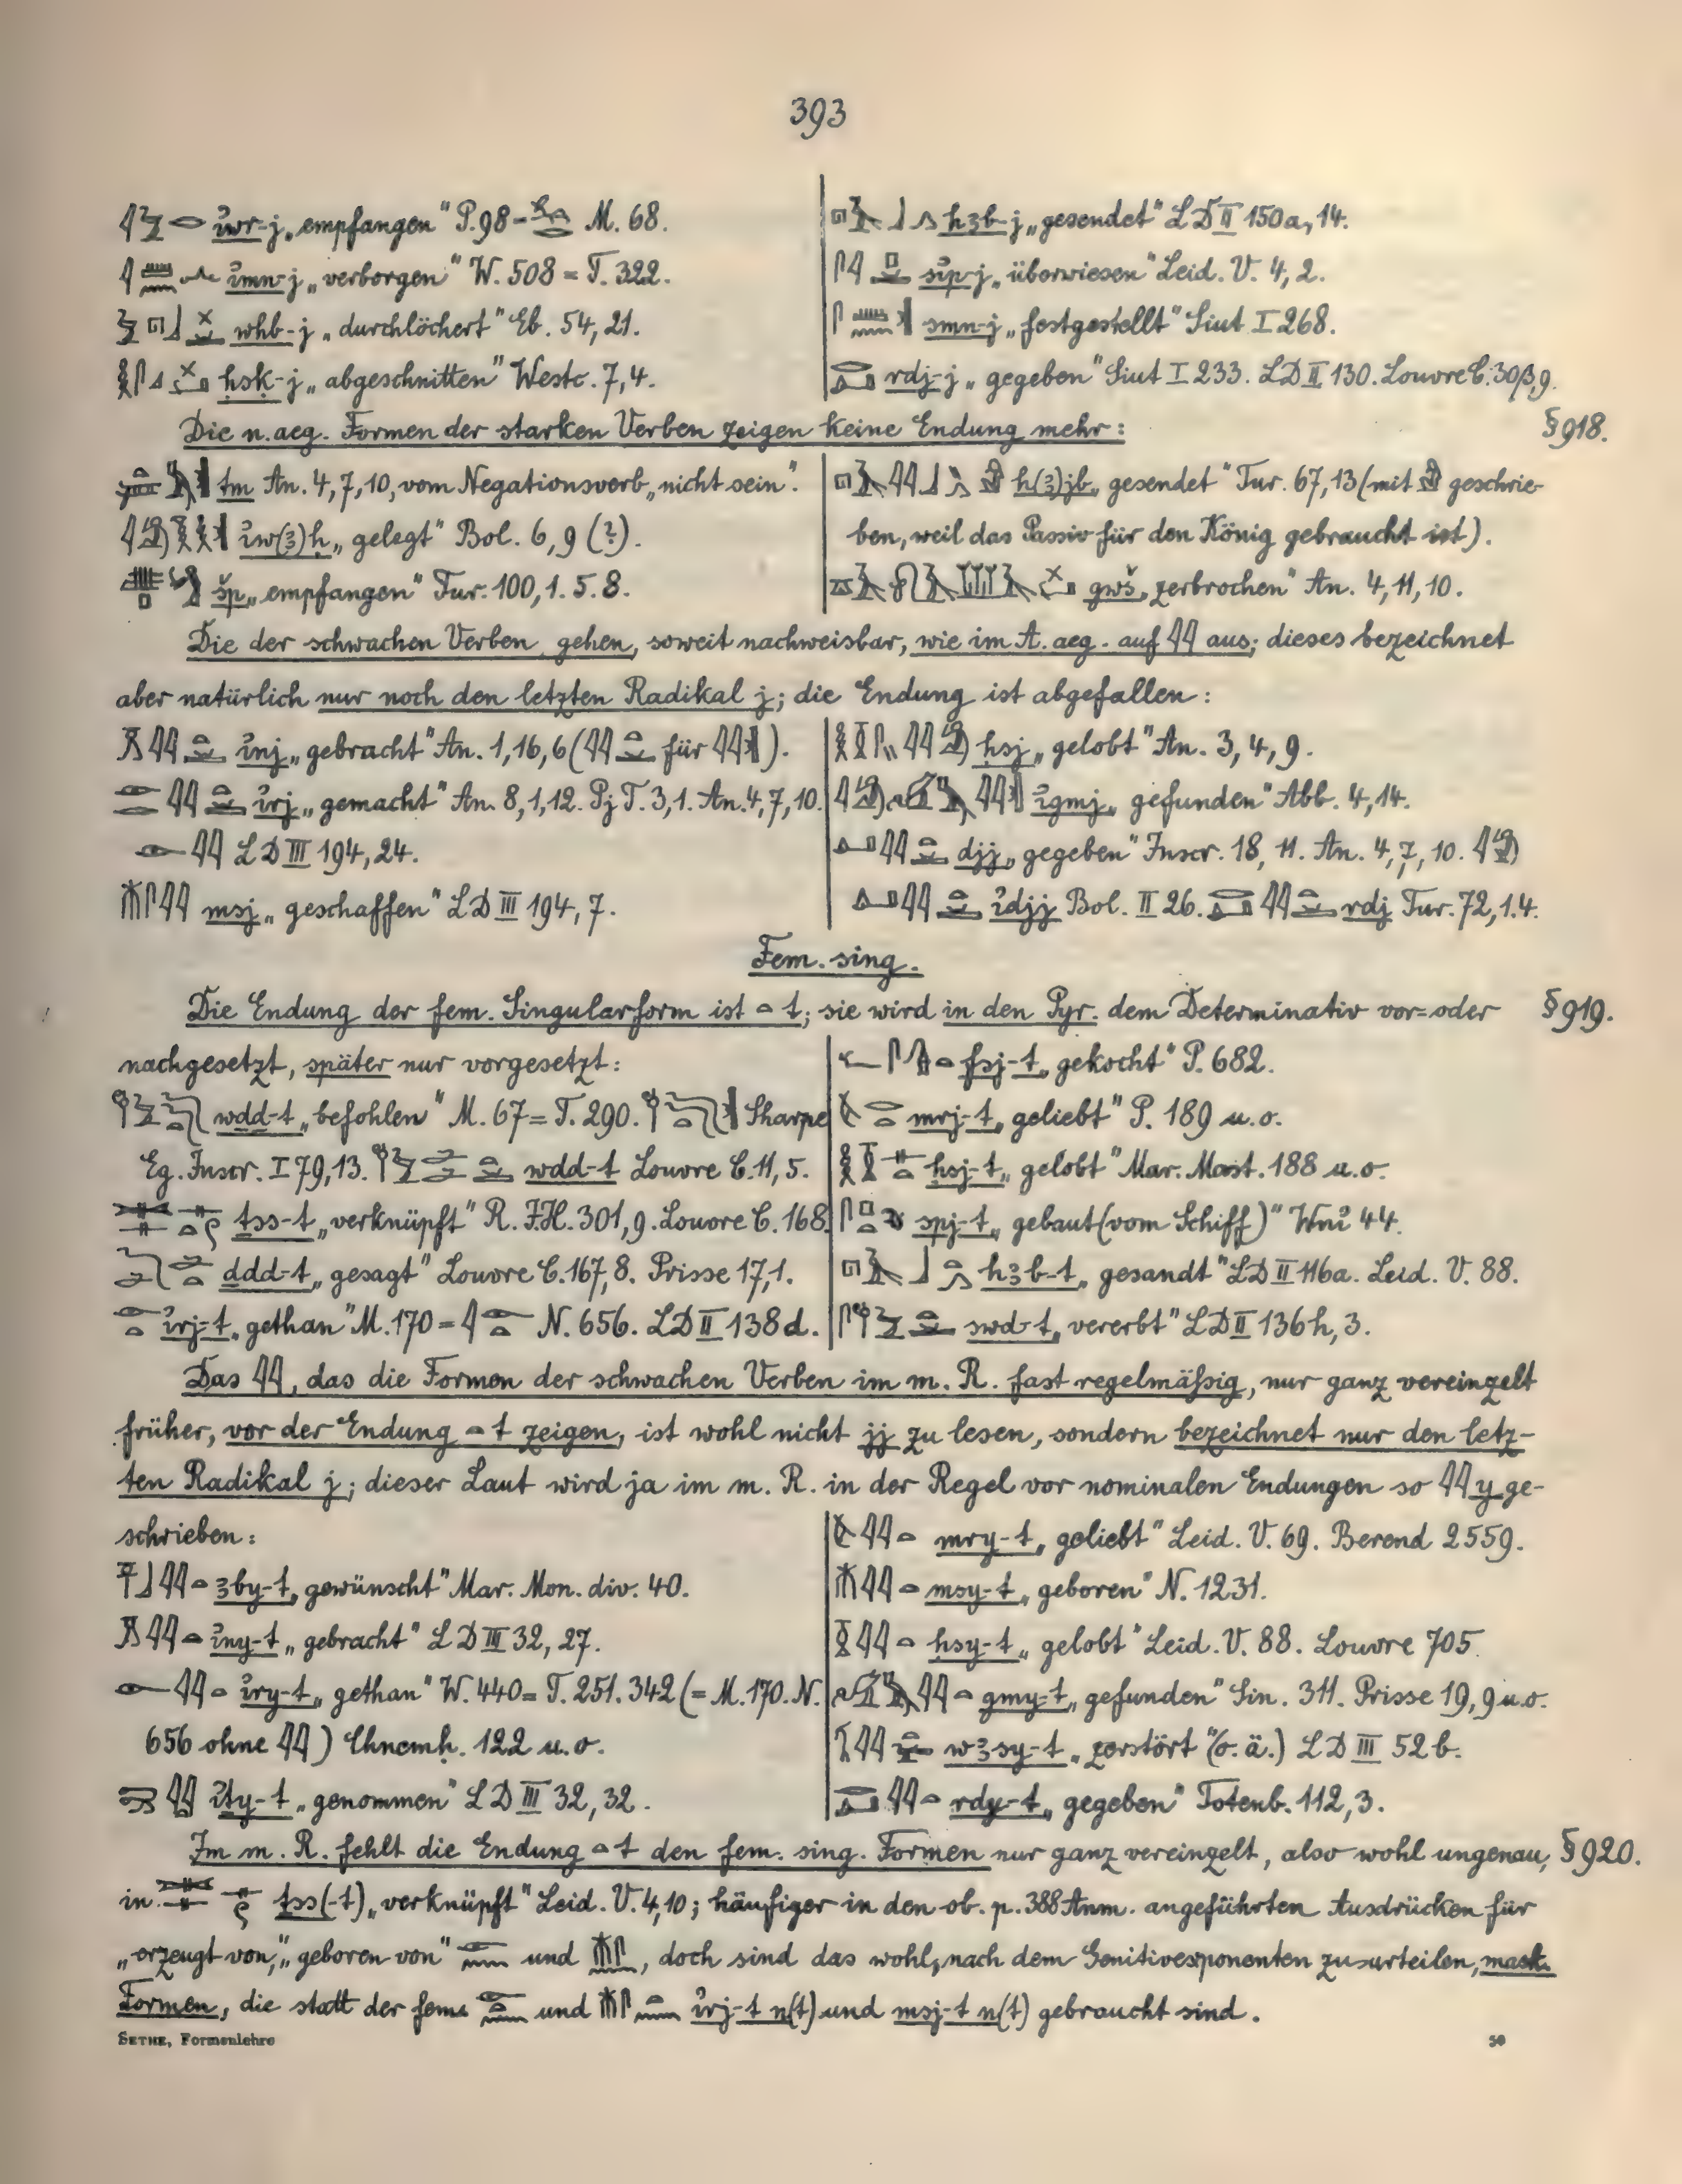 393
ı͗wr-j „empfangen“ P. 98 = M. 68.
ı͗mn-j „verborgen“ W. 508 = T. 322.
whb-j „durchlöchert“ Eb. 54, 21.
ḥsḳ-j „abgeschnitten“ Westc. 7, 4.
hꜣb-j „gesendet“ LD II 150a, 14.
sı͗p-j „überwiesen“ Leid. V. 4, 2.
smn-j „festgestellt“ Siut I 268.
rdj-j „gegeben“ Siut I 233. LD II 130. Louvre C. 30β, 9.
Die n. aeg. Formen der starken Verben zeigen keine Endung mehr: § 918.
tm An. 4, 7, 10, vom Negationsverb „nicht sein“.
ı͗w(ꜣ)ḥ „gelegt“ Bol. 6, 9 (?).
šp „empfangen“ Tur. 100, 1. 5. 8.
h(ꜣ)jb „gesendet“ Tur. 67, 13 (mit geschrie-
ben, weil das Passiv für den König gebraucht ist).
gwš „zerbrochen“ An. 4, 11, 10.
Die der schwachen Verben gehen, soweit nachweisbar, wie im A. aeg. auf 𓇋𓇋 aus; dieses bezeichnet
aber natürlich nur noch den letzten Radikal j; die Endung ist abgefallen:
ı͗nj „gebracht“ An. 1, 16, 6 (𓇋𓇋 für 𓇋𓇋).
ı͗rj „gemacht“ An. 8, 1, 12. Pj T. 3, 1. An. 4, 7, 10.
𓁹𓇋𓇋 LD III 194, 24.
msj „geschaffen“ LD III 194, 7.
ḥsj „gelobt“ An. 3, 4, 9.
ı͗gmj „gefunden“ Abb. 4, 14.
djj „gegeben“ Inscr. 18, 11. An. 4, 7, 10.
ı͗djj Bol. II 26. rdj Tur. 72, 1. 4.
Fem. sing.
Die Endung der fem. Singularform ist 𓏏 t; sie wird in den Pyr. dem Determinativ vor= oder § 919.
nachgesetzt, später nur vorgesetzt:
wḏd-t „befohlen“ M. 67 = T. 290. Sharpe
Eg. Inscr. I 79, 13. wdd-t Louvre C. 11, 5.
ṯss-t „verknüpft“ R. J. H. 301, 9. Louvre C. 168.
ḏdd-t „gesagt“ Louvre C. 167, 8. Prisse 17, 1.
ı͗rj-t „gethan“ M. 170 = N. 656. LD II 138 d.
fsj-t „gekocht“ P. 682.
mrj-t „geliebt“ P. 189 u. o.
ḥsj-t „gelobt“ Mar. Mast. 188 u. o.
spj-t „gebaut (vom Schiff)“ Wnı͗ 44.
hꜣb-t „gesandt“ LD II 116a. Leid. V. 88.
swḏ-t „vererbt“ LD II 136 h, 3.
Das 𓇋𓇋, das die Formen der schwachen Verben im m. R. fast regelmäßig, nur ganz vereinzelt
früher, vor der Endung 𓏏 t zeigen, ist wohl nicht jj zu lesen, sondern bezeichnet nur den letz-
ten Radikal j; dieser Laut wird ja im m. R. in der Regel vor nominalen Endungen so 𓇋𓇋 y ge-
schrieben:
ꜣby-t „gewünscht“ Mar. Mon. div. 40.
ı͗ny-t „gebracht“ LD III 32, 27.
ı͗ry-t „gethan“ W. 440 = T. 251. 342 (= M. 170. N.
656 ohne 𓇋𓇋) Chnemh. 122 u. o.
ı͗ṯy-t „genommen“ LD III 32, 32.
mry-t „geliebt“ Leid. V. 69. Berend 2559.
msy-t „geboren“ N. 1231.
ḥsy-t „gelobt“ Leid. V. 88. Louvre 705.
gmy-t „gefunden“ Sin. 311. Prisse 19, 9 u. o.
wꜣsy-t „zerstört“ (o. ä.) LD III 52 b.
rdy-t „gegeben“ Totenb. 112, 3.
Im m. R. fehlt die Endung 𓏏 t den fem. sing. Formen nur ganz vereinzelt, also wohl ungenau, § 920.
in ṯss(-t) „verknüpft“ Leid. V. 4, 10; häufiger in den ob. p. 388 Anm. angeführten Ausdrücken für
„erzeugt von“, „geboren von“ und , doch sind das wohl, nach dem Genitivexponenten zu urteilen, mask.
Formen, die statt der fem. und ı͗rj-t n(t) und msj-t n(t) gebraucht sind.
SETHE, Formenlehre 50